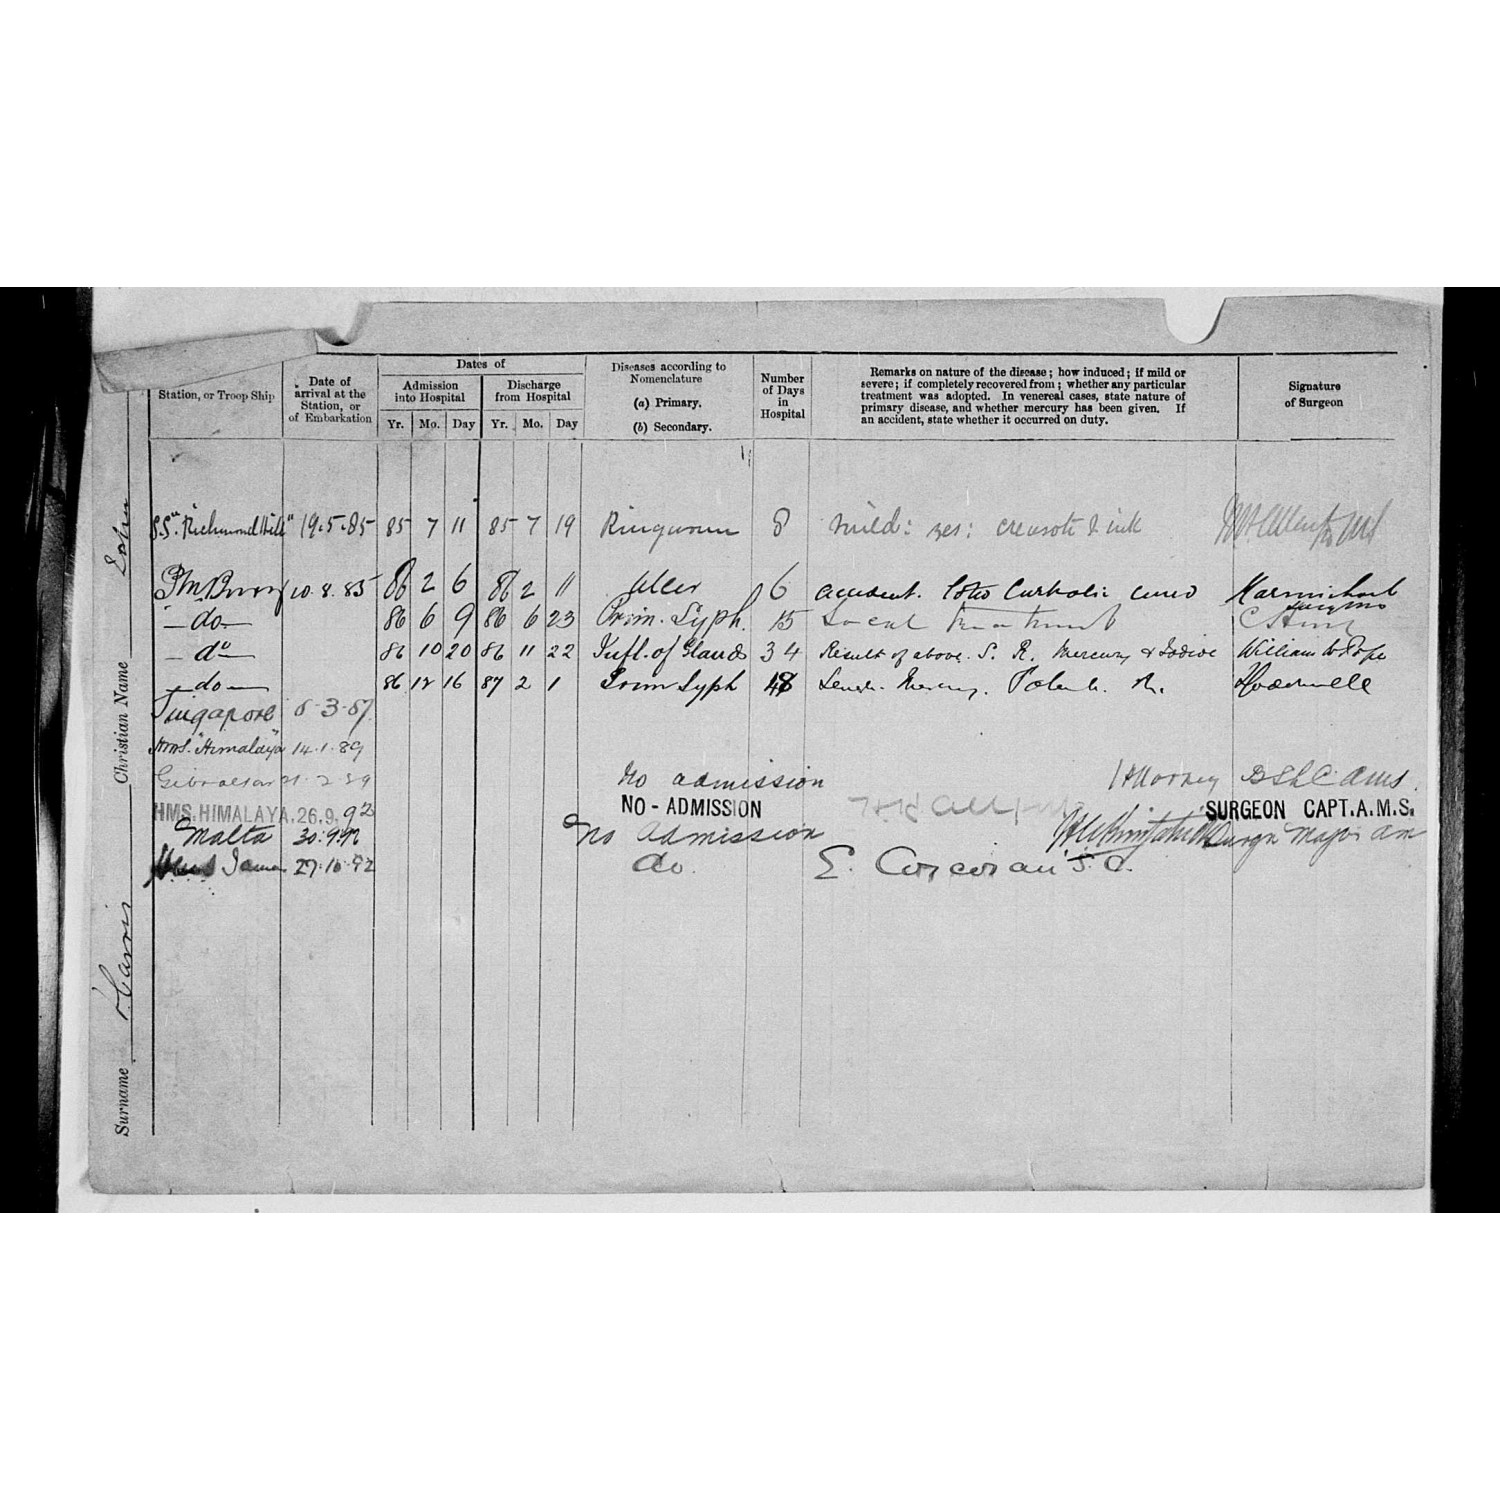 Station, or Troop Ship
Date of arrival at the Station, or of Embarkation
Dates of
Admission into Hospital
Discharge from Hospital
Yr. Mo. Day Yr. Mo. Day
Diseases according to Nomenclature
(a) Primary.
(b) Secondary.
Number of Days in Hospital
Remarks on nature of the disease; how induced; if mild or
severe; if completely recovered from; whether any particular
treatment was adopted. In venereal cases, state nature of
primary disease, and whether mercury has been given. If
an accident, state whether it occurred on duty.
Signature of Surgeon
S.S. "Richmond Hill" 19.5.85 85 7 11 85 7 19 Ringworm 8 mild: yes: creasote & ink
10.8.85 86 2 6 86 2 11 Ulcer 6 accident. Lotio Carbolic cured
-do- 86 6 9 86 6 23 Prim. Syph. 15 Local treatment
-do- 86 10 20 86 11 22 Infl. of Glands 34 Result of above. S. R. Mercury & Iodide William W Pope
-do- 86 12 16 87 2 1 Syph 48
Singapore 3.87
HMS. "Himalaya" 14.1.89
Gibraltar 2 89 No admission
HMS. HIMALAYA. 26.9.92 NO-ADMISSION SURGEON CAPT. A.M.S.
Malta 30.9.92 No admission Surgn Major
27.10.92 do. E. Corcoran S.C.
Christian Name John
Surname Harris